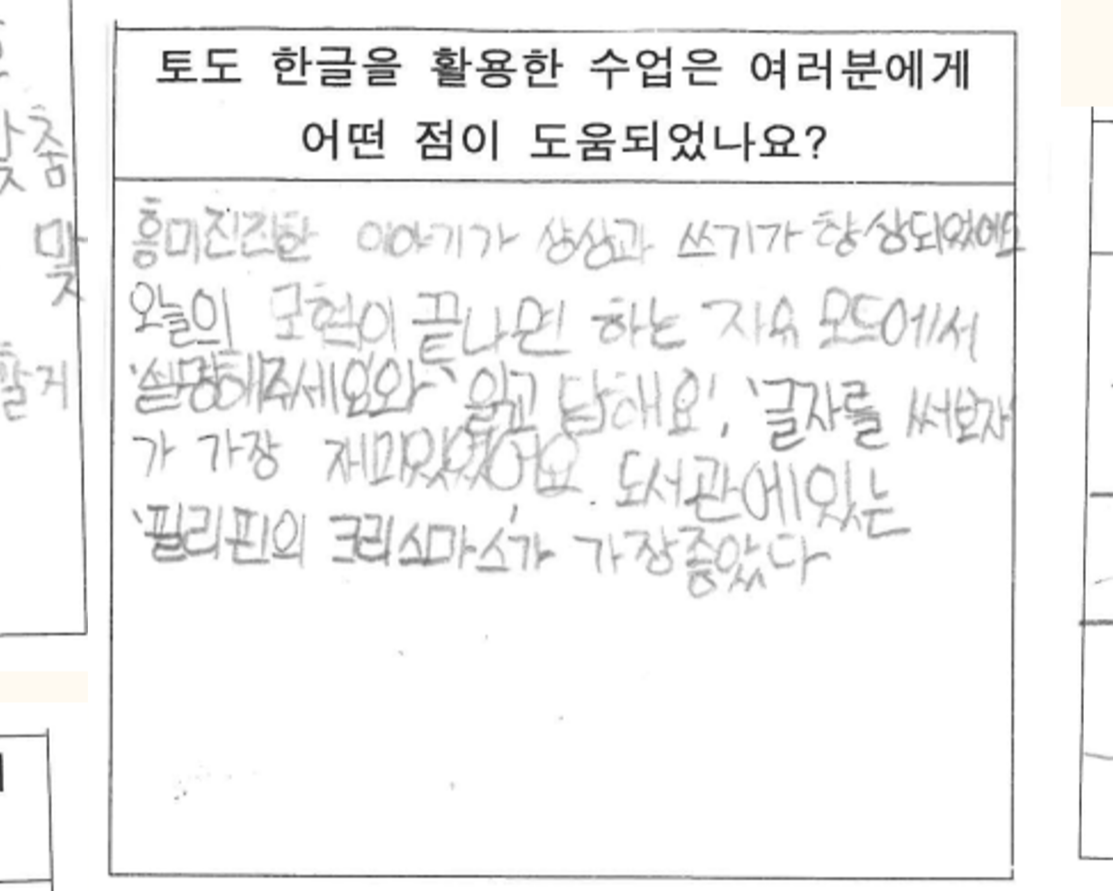 토도 한글을 활용한 수업은 여러분에게
어떤 점이 도움되었나요?
흥미진진한 이야기가 상상과 쓰기가 향상되었어요
오늘의 모험이 끝나면 하는 자유 모드에서
'설명해주세요와' 읽고 답해요', '글자를 써보자'
가 가장 재미있었어요. 도서관에있는
'필리핀의 크리스마스'가 가장좋았다
맞춤
맞
할거